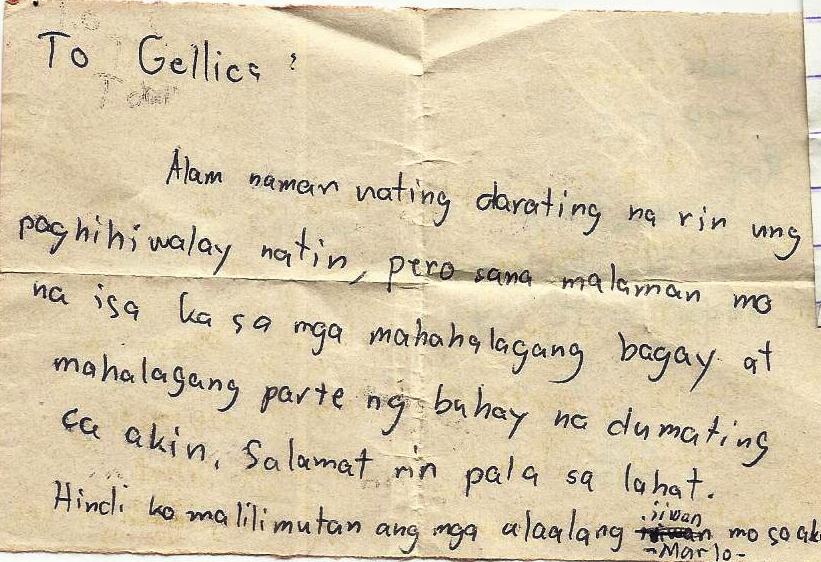 To Gellica :
Alam naman nating darating na rin ung
paghihiwalay natin, pero sana malaman mo
na isa ka sa mga mahahalagang bagay at
mahalagang parte ng buhay na dumating
sa akin. Salamat rin pala sa lahat.
iiwan
Hindi ko malilimutan ang mga alaalang mo sa ak
-Marlo-